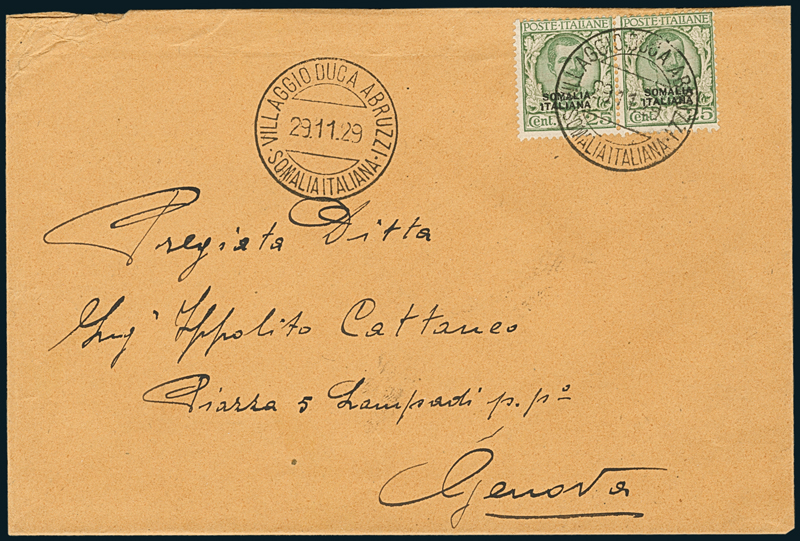 POSTE·ITALIANE POSTE·ITALIANE
SOMALIA ITALIANA SOMALIA ITALIANA
Cent. 25 Cent. 25
VILLAGGIO DUCA ABRUZZI
SOMALIA ITALIANA
VILLAGGIO DUCA ABRUZZI
29.11.29
SOMALIA ITALIANA
Pregiata Ditta
Ing. Ippolito Cattaneo
Piazza 5 Lampadi p. pº
Genova